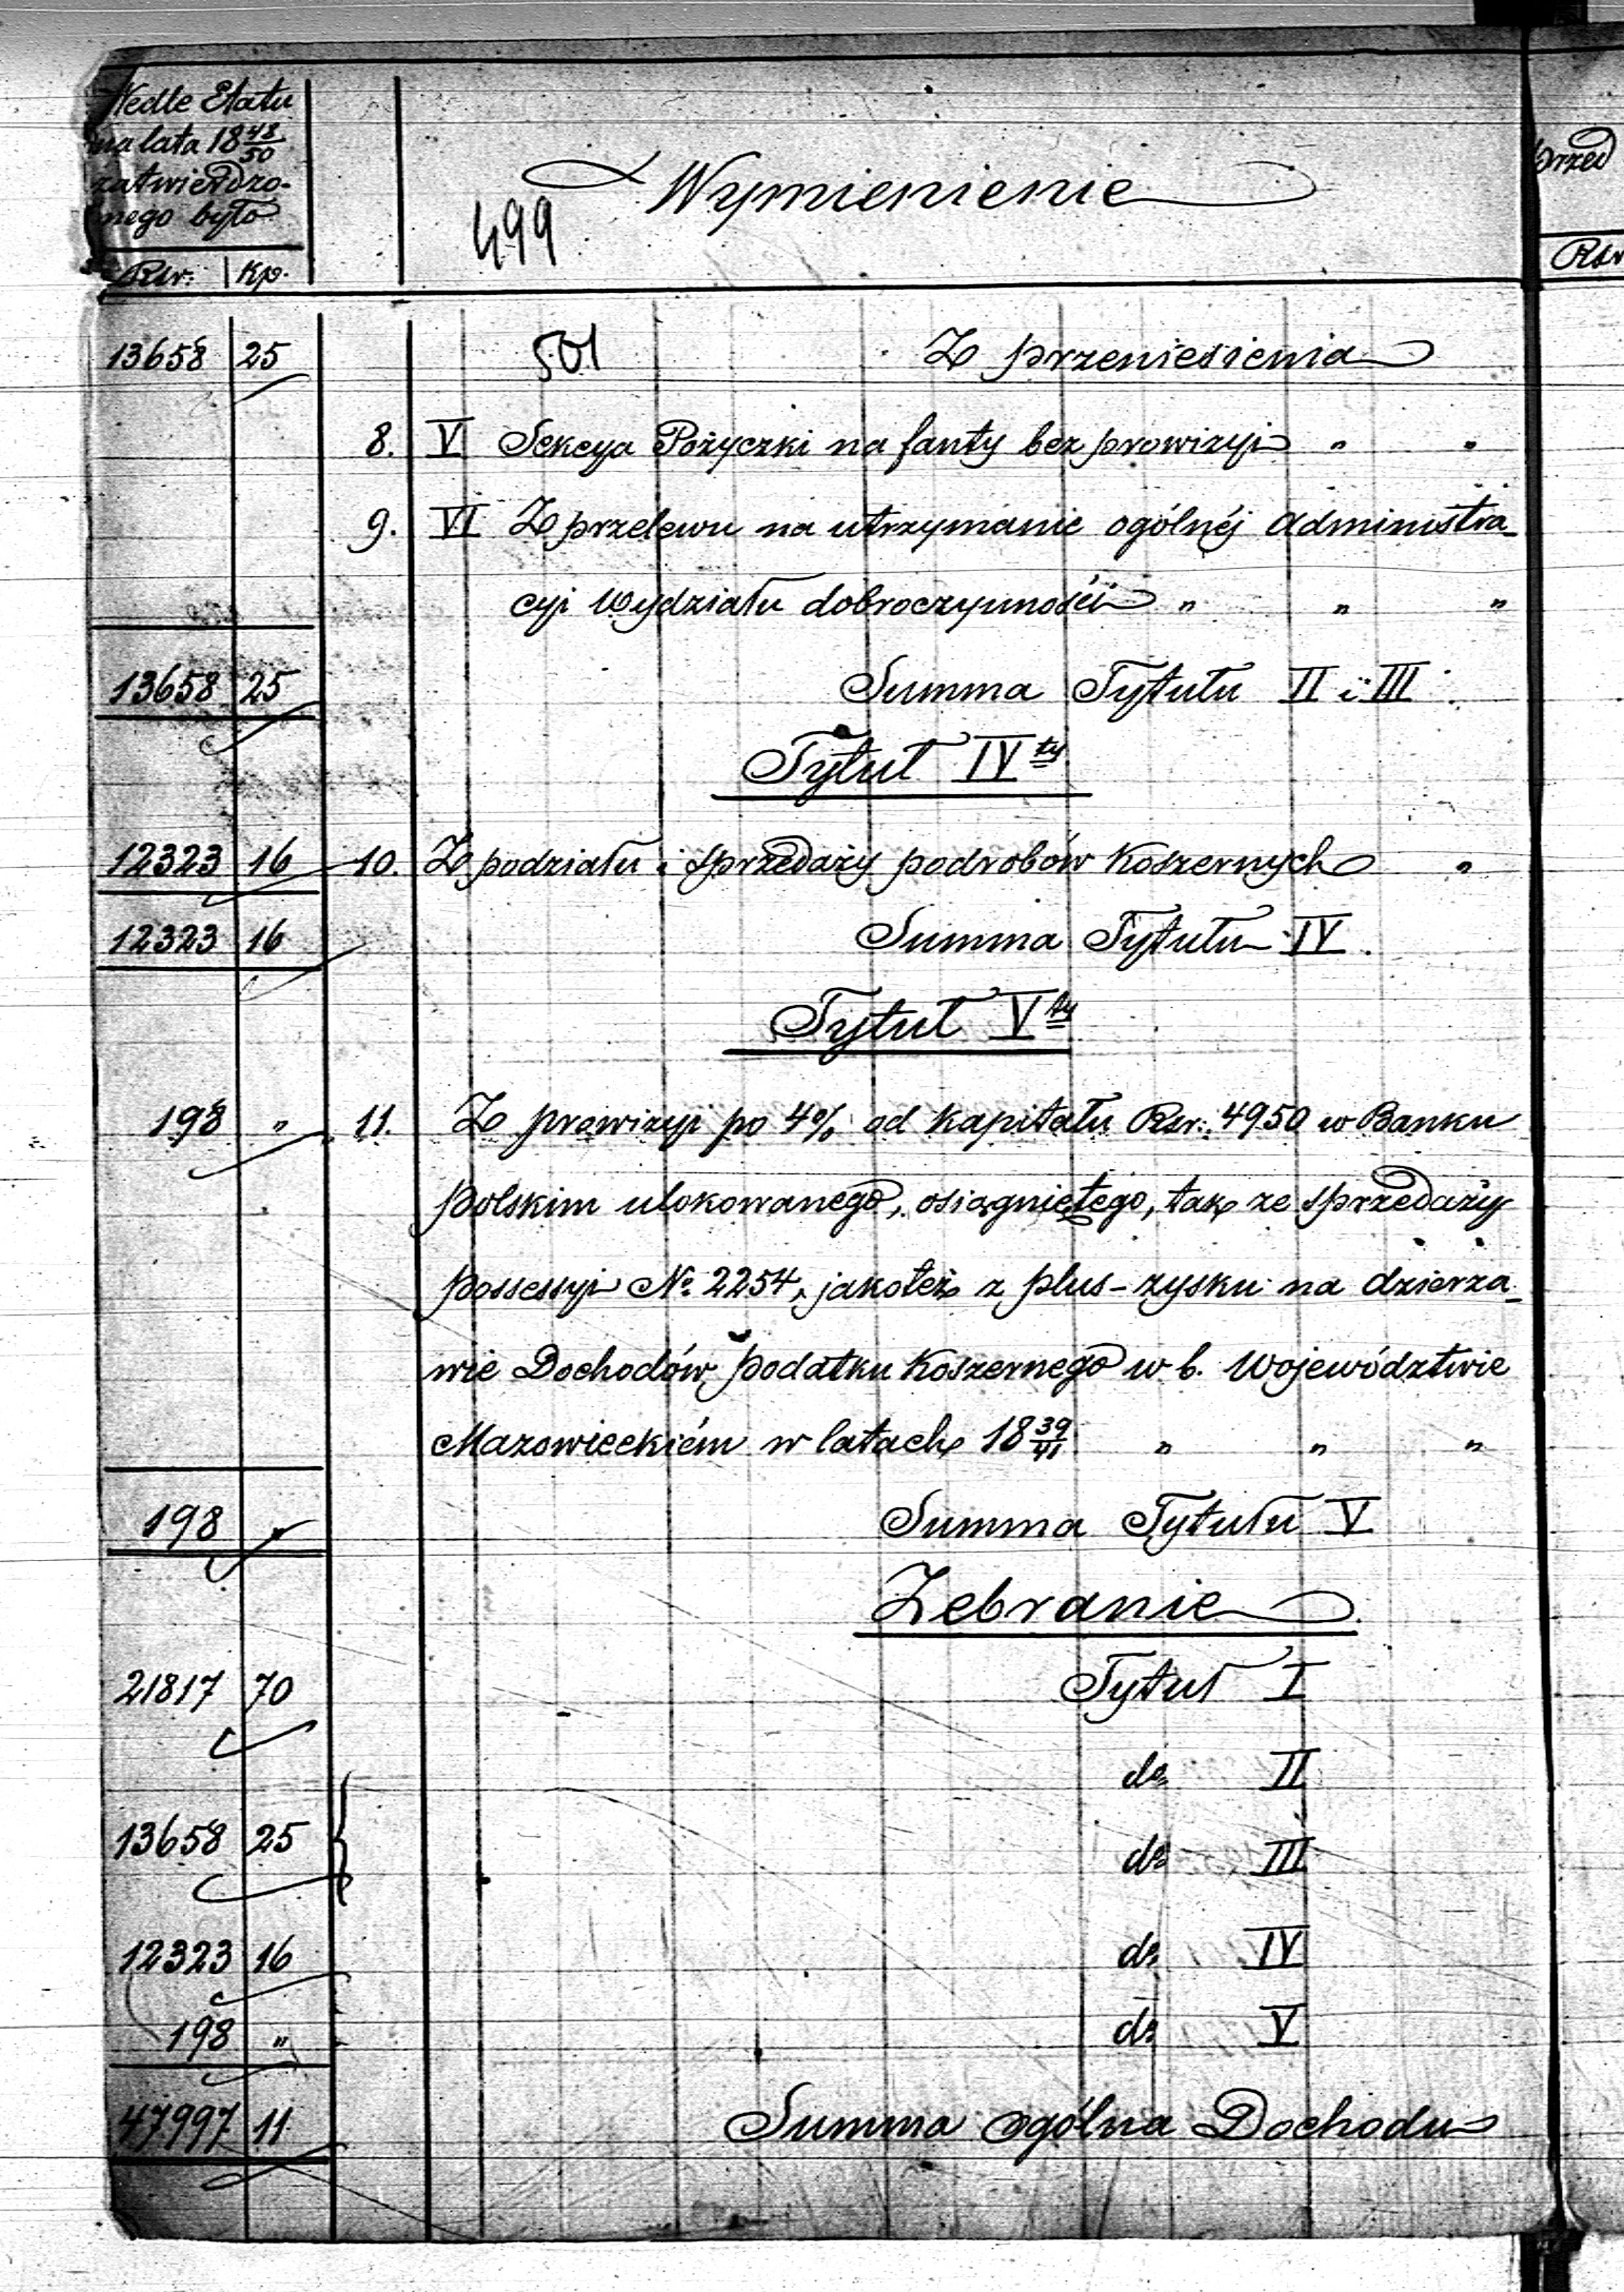 Wedle Etatu
na lata 18 48/50
zatwierdzo-
nego było
Rsr. Kp.
Wymienienie
499
przed
Rsr
13658 25 501 Z przeniesienia
8. V Sekcya Pożyczki na fanty bez prowizyi " "
9. VI Z przelewu na utrzymanie ogólnéj administra-
cyi Wydziału dobroczynności " " "
13658 25 Summa Tytułu II i III
Tytuł IV ty
12323 16 10. Z podziału i sprzedaży podrobów Koszernych "
12323 16 Summa Tytułu IV.
Tytuł V ty
198 " 11. Z prowizyi po 4% od Kapitału Rsr. 4950 w Banku
polskim ulokowanego, osiągniętego, tak ze sprzedaży
possessyi No. 2254, jakoteż z plus-zysku na dzierża-
wie Dochodów podatku Koszernego w b. Województwie
Mazowieckiém w latach 18 39/41 " " "
198 " Summa Tytułu V
Zebranie
21817 70 Tytuł I
do II
13658 25 do III
12323 16 do IV
198 " do V
47997 11 Summa ogólna Dochodu